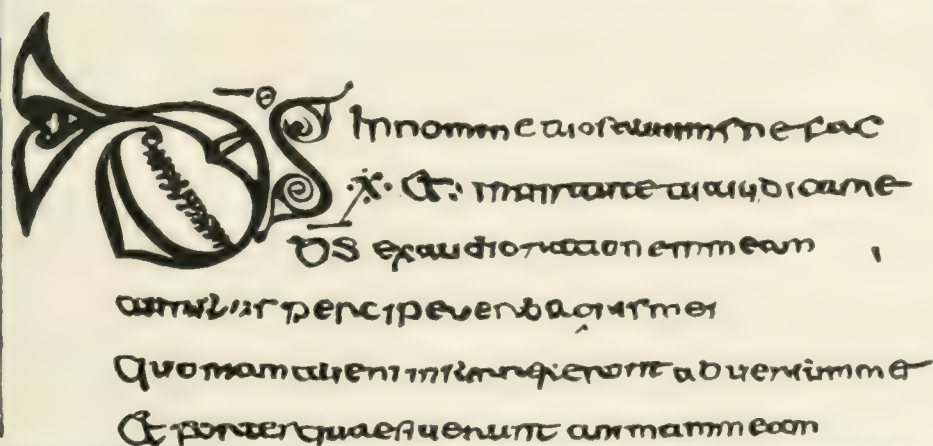 DS In nomine tuo saluum me fac
·X· Et · in uirtute tua iudica me
DS exaudi orationem meam
auribus percipe uerba oris mei
Quoniam alieni insurrexerunt aduersum me
Et fortes quaesierunt animam meam